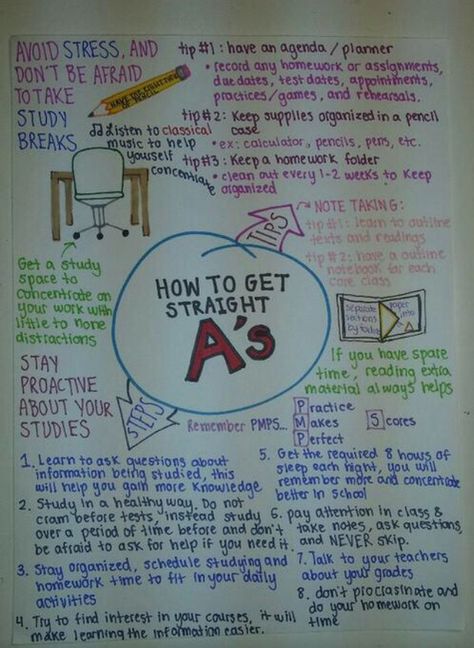 AVOID STRESS, AND
DON'T BE AFRAID
TO TAKE
STUDY
BREAKS
tip #1: have an agenda / planner
• record any homework or assignments,
due dates, test dates, appointments,
practices/games, and rehearsals.
tip #2: Keep supplies organized in a pencil
case
• ex: calculator, pencils, pens, etc.
tip #3: Keep a homework folder
• clean out every 1-2 weeks to keep
organized
Listen to classical
music to help
yourself
concentrate
TIPS
NOTE TAKING:
tip #1: learn to outline
texts and readings
tip #2: have a outline
notebook for each
core class
Get a study
space to
concentrate on
your work with
little to none
distractions
HOW TO GET
STRAIGHT
A's
separate
sections
by today
paper
into
If you have spare
time, reading extra
material always helps
STAY
PROACTIVE
ABOUT YOUR
STUDIES
STEPS
Remember PMPS...
Practice
Makes
Perfect
Scores
1. Learn to ask questions about
information being studied, this
will help you gain more knowledge
2. Study in a healthy way. Do not
cram before tests, instead study
over a period of time before and don't
be afraid to ask for help if you need it.
3. Stay organized, schedule studying and
homework time to fit in your daily
activities
4. Try to find interest in your courses, it will
make learning the information easier.
5. Get the required 8 hours of
sleep each night, you will
remember more and concentrate
better in school
6. pay attention in class &
take notes, ask questions
and NEVER skip.
7. Talk to your teachers
about your grades
8. don't procrasinate and
do your homework on
time